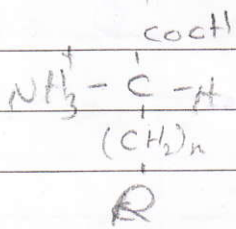 COOH
+
NH3 - C - H
(CH2)n
R